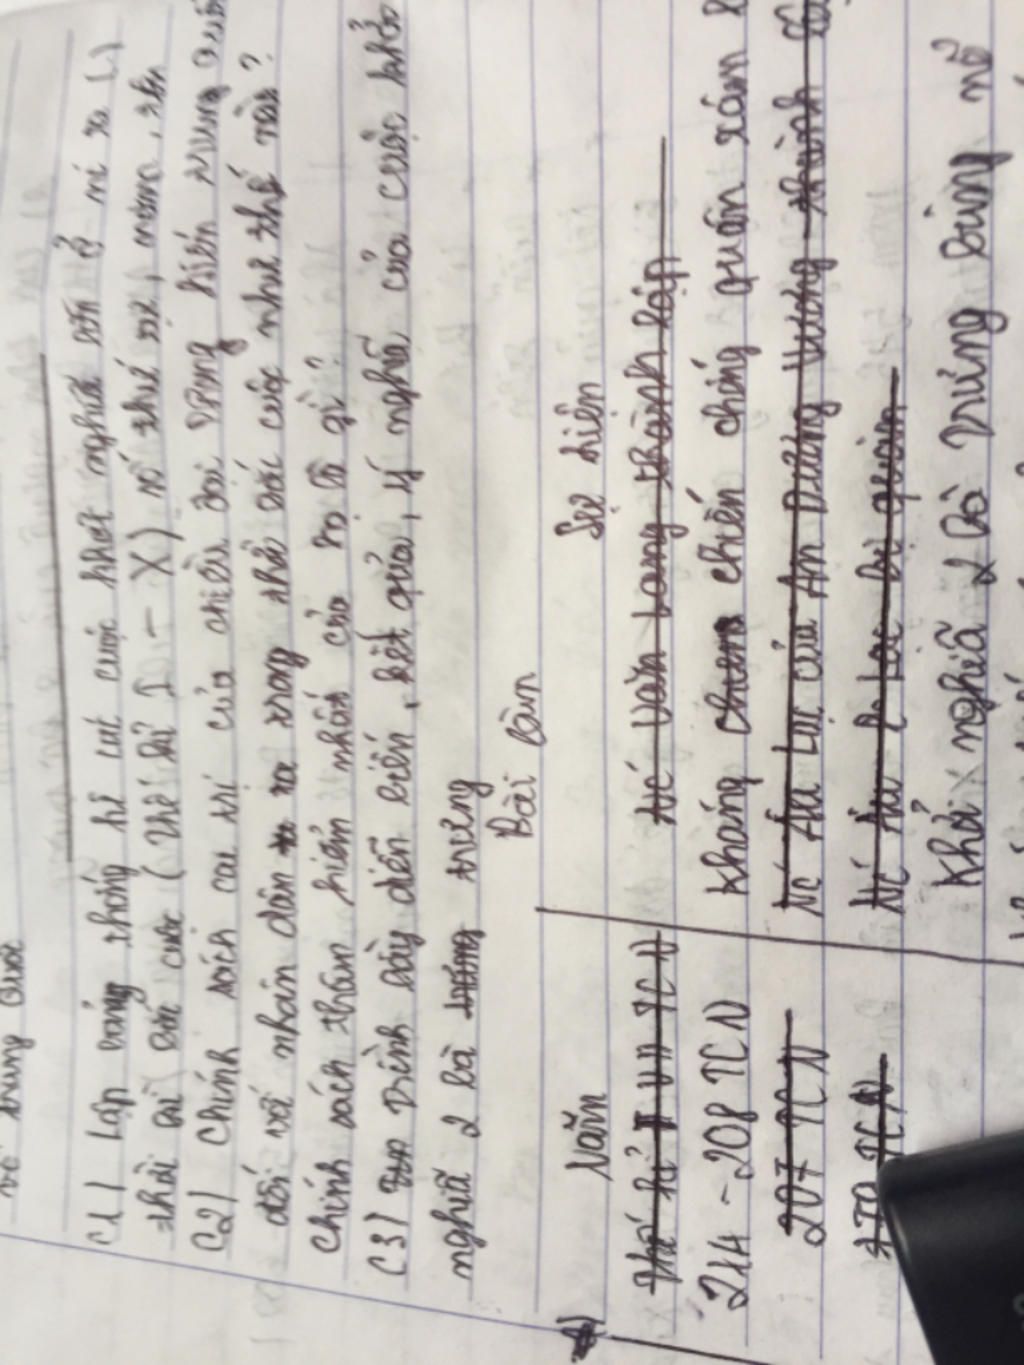 về trung quốc
C1) Lập bảng thống kê cuộc khởi nghĩa lớn ở
thời Bắc cuộc (thế kỉ I - X)
C2) Chính sách cai trị của triều đại phong kiến trung quố
đối với nhân dân ta trong thời Bắc cuộc như thế nào?
Chính sách thâm hiểm nhất của họ là gì?
C3) Trình bày diễn biến, kết quả, ý nghĩa của cuộc khởi
nghĩa 2 bà trưng
Bài làm
Năm Sự kiện
Thế kỉ VII TCN Nc Văn Lang thành lập
214 - 208 TCN Kháng chiến chống quân xâm
207 TCN Nc Âu Lạc của An Dương Vương thành
179 TCN Nc Âu Lạc bị quân
Khởi nghĩa 2 Bà Trưng bùng nổ